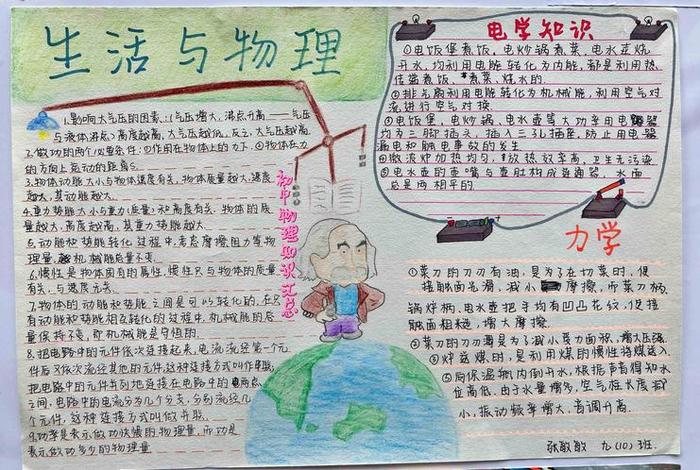 生活与物理
1.影响大气压的因素:(气压增大,沸点升高——气压
与液体沸点)高度越高,大气压越低,反之,大气压越高.
2.做功的两个必要条件:①作用在物体上的力F.②物体在力
的方向上移动的距离S.
3.物体动能大小与物体速度有关,物体质量越大,速度
越大,其动能越大.
4.重力势能大小与重力(质量)和高度有关,物体的质
量越大,高度越高,其重力势能越大.
5.动能和势能转化过程中考虑摩擦阻力等物
理量,机械能总量不变.
6.惯性是物体固有的属性,惯性只与物体的质量
有关,与速度无关.
7.物体的动能和势能之间是可以转化的,在只
有动能和势能相互转化的过程中,机械能的总
量保持不变,即机械能是守恒的.
8.把电路中的元件依次连接起来,电流流经第一个元
件后又依次流经其他的元件,这种连接方式叫作串联;
把电路中的元件并列地连接在电路中的两点
之间,电路中的电流分为几个分支,分别流经几
个元件,这种连接方式叫做并联.
9.功率是表示做功快慢的物理量,而功是
表示做功多少的物理量
初中物理知识汇总
电学知识
①电饭煲煮饭,电炒锅煮菜,电水壶烧
开水,均利用电能转化为内能,都是利用热
传递煮饭、煮菜、烧水的.
②排气扇利用电能转化为机械能,利用空气对
流进行空气对换
③电饭煲,电炒锅、电水壶等大功率用电器
均为三脚插头,插入三孔插座,防止用电器
漏电和触电事故的发生
④微波炉加热均匀,热效率高,卫生无污染
⑤电水壶的壶嘴与壶肚构成连通器,水面
总是两相平的
力学
①菜刀的刀刃有油,是为了在切菜时,使
接触面光滑,减小摩擦,而菜刀柄,
锅炉柄、电水壶把手均有凹凸花纹,使接
触面粗糙,增大摩擦.
②菜刀的刀刃薄是为了减小受力面积,增大压强.
③炉盖煤时,是利用煤的惯性将煤送入.
④向保温瓶内倒开水,根据声音得知水
位高低.由于水量增多,空气柱长度减
小,振动频率增大,音调升高.
张敏敏 九(10)班.